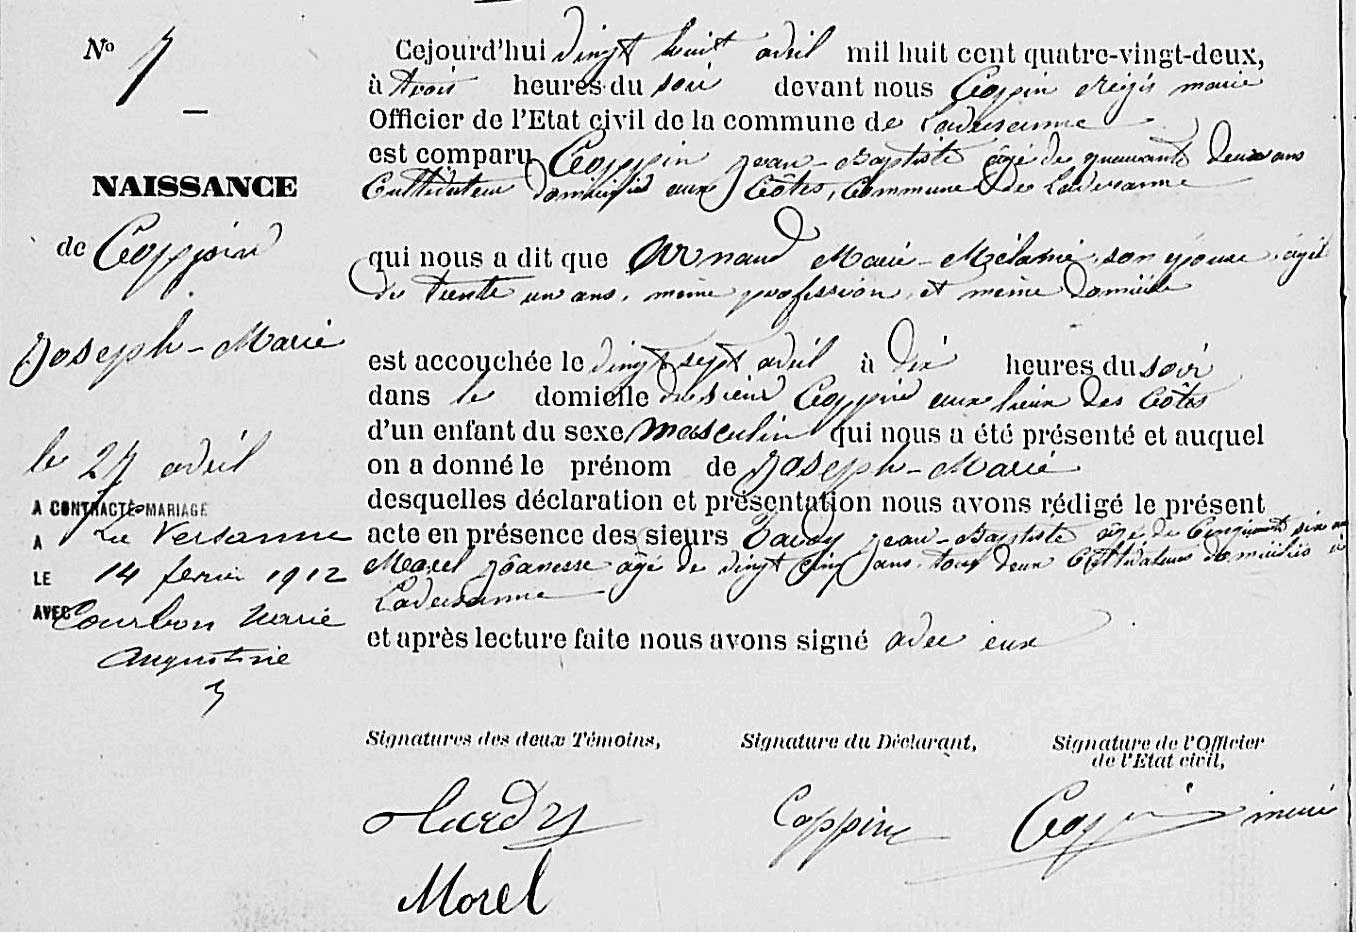 No 7
NAISSANCE
de Coppin
Joseph-Marie
le 27 avril
A CONTRACTÉ MARIAGE
A La Versanne
LE 14 fevrier 1912
AVEC Courbon Marie
Augustine
Cejourd'hui vingt huit avril mil huit cent quatre-vingt-deux,
à trois heures du soir devant nous Coppin Régis maire
Officier de l'Etat civil de la commune de Laversanne
est comparu Coppin Jean-Baptiste âgé de quarante deux ans
Cultivateur domicilié aux Côtes, Commune de Laversanne
qui nous a dit que Arnaud Marie-Mélanie, son épouse, âgée
de trente un ans, même profession, et même domicile
est accouchée le vingt sept avril à dix heures du soir
dans le domicile du sieur Coppin aux lieux des Côtes
d'un enfant du sexe masculin qui nous a été présenté et auquel
on a donné le prénom de Joseph-Marie
desquelles déclaration et présentation nous avons rédigé le présent
acte en présence des sieurs Jean-Baptiste âgé de Cinquante six ans
Morel âgé de vingt cinq ans, tous deux Cultivateurs domiciliés à
Laversanne
et après lecture faite nous avons signé avec eux
Signatures des deux Témoins,
Signature du Déclarant,
Signature de l'Officier
de l'Etat civil,
Morel
Coppin
Coppin maire